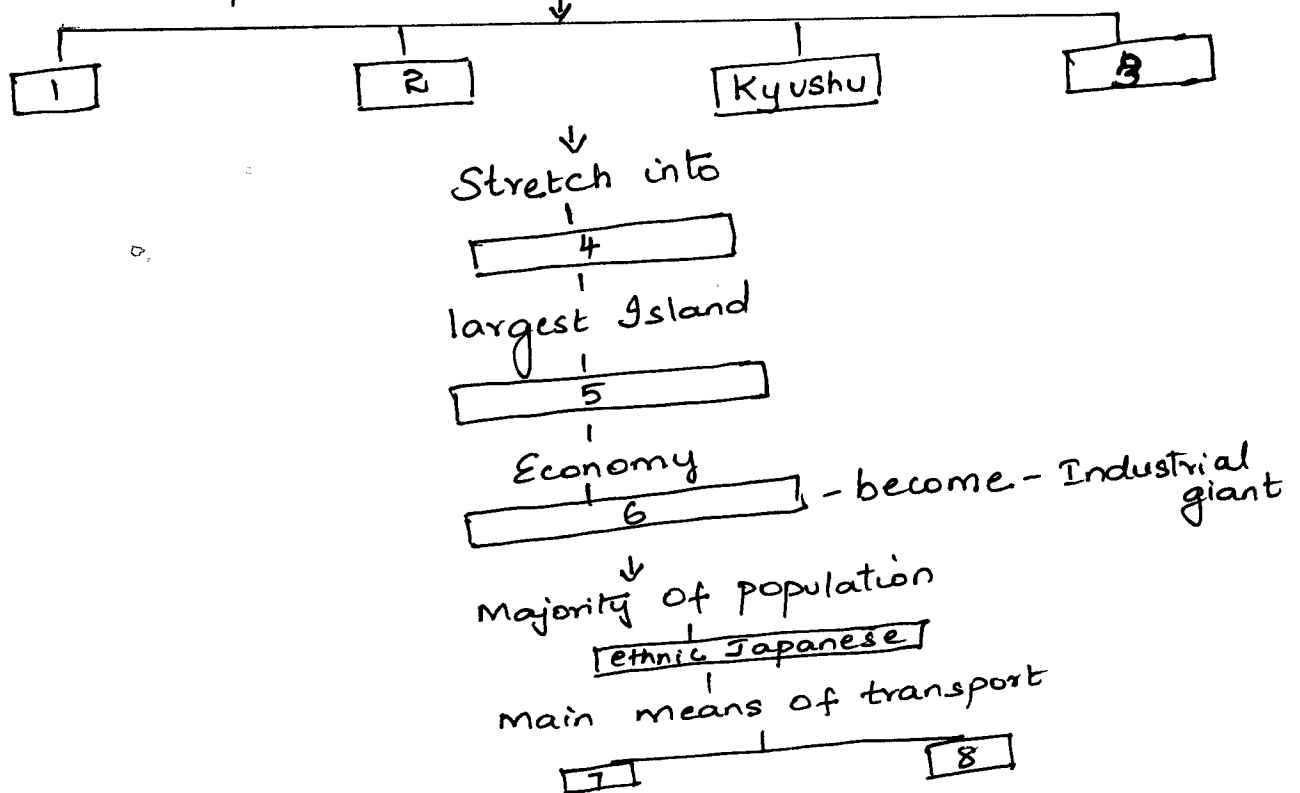 1 2 Kyushu 3
Stretch into
4
largest Island
5
Economy
6 - become - Industrial
giant
Majority of population
ethnic Japanese
main means of transport
7 8